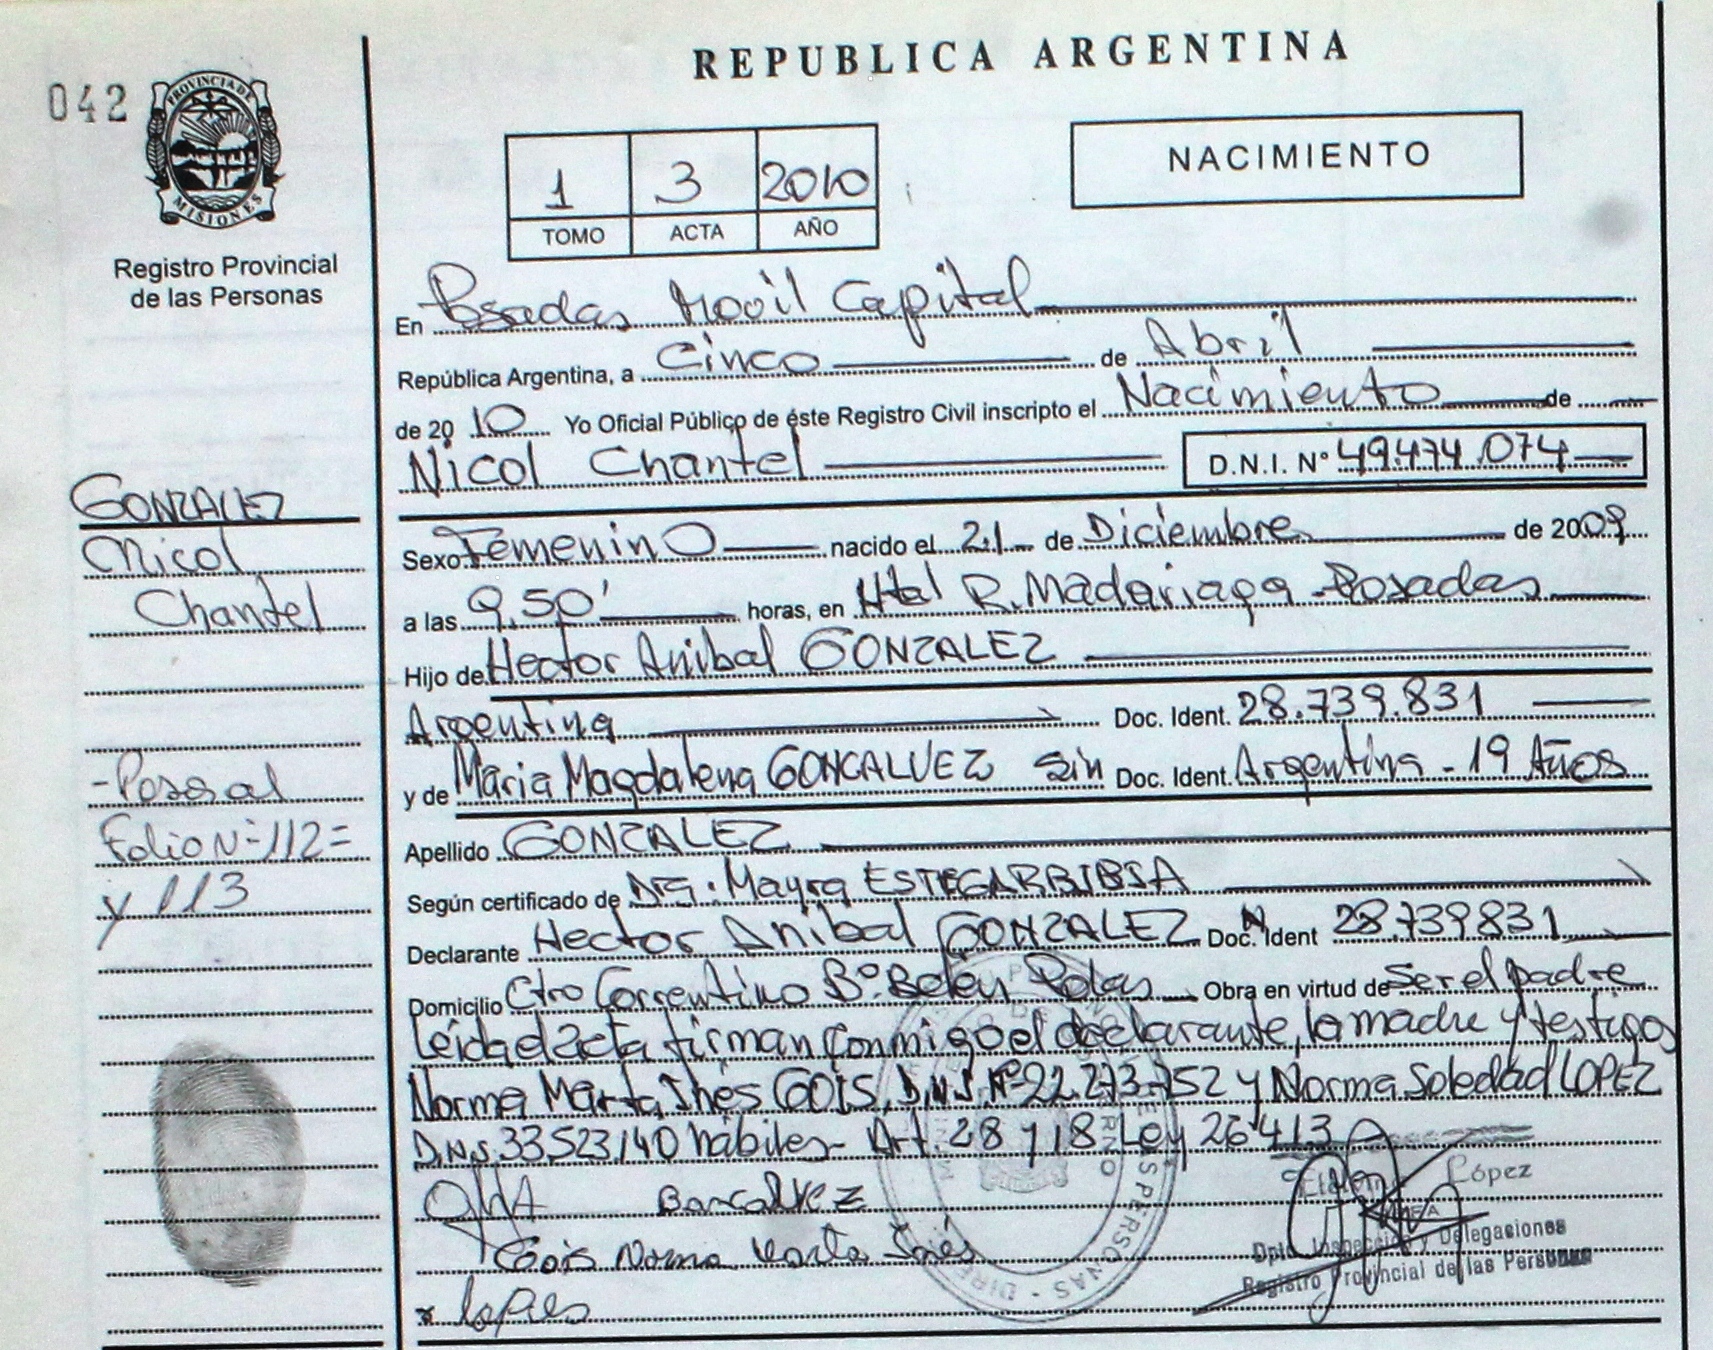 REPUBLICA ARGENTINA
042
PROVINCIA DE
MISIONES
Registro Provincial
de las Personas
1 3 2010
TOMO ACTA AÑO
NACIMIENTO
En Posadas Movil Capital
República Argentina, a Cinco de Abril
de 2010 Yo Oficial Público de éste Registro Civil inscripto el Nacimiento de
Nicol Chantel D.N.I. N° 49.474.074
GONZALEZ
Nicol
Chantel
Sexo Femenino nacido el 21 de Diciembre de 2009
a las 9,50' horas, en Htal R. Madariaga - Posadas
Hijo de Hector Anibal GONZALEZ
Argentina Doc. Ident. 28.739.831
y de Maria Magdalena GONCALVEZ sin Doc. Ident. Argentina - 19 Años
Folio Nº 112=
y 113
Apellido GONZALEZ
Según certificado de Dra. Mayra ESTEGARRIBIA
Declarante Hector Anibal GONZALEZ Doc. Ident 28.739831
Domicilio Ctro Correntino Bº. Belen Pdas Obra en virtud de ser el padre
Leída el acta firman conmigo el declarante, la madre y testigos
Norma Marta Inés GOIS, D.N.I. Nº 22.273.752 y Norma Soledad LOPEZ
D.N.I. 33523140 hábiles - Art. 28 y 18 Ley 26413
Goncalvez
Gois Norma Marta Inés
López
Dpto. Inspección y Delegaciones
Registro Provincial de las Personas